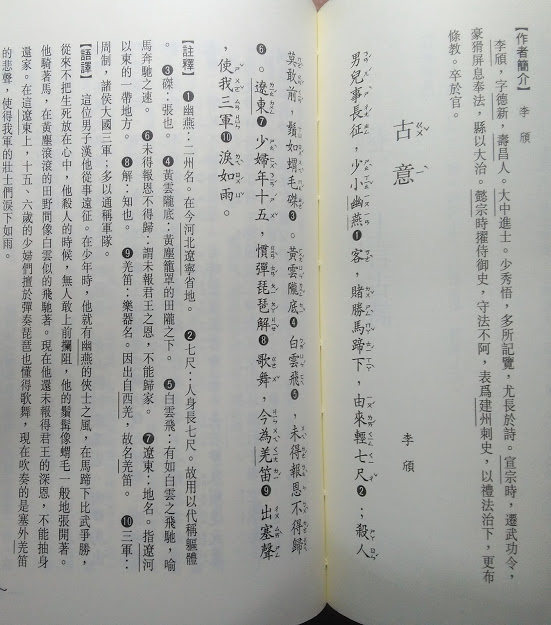 【作者簡介】 李 頎
李頎，字德新，壽昌人。大中進士。少秀悟，多所記覽，尤長於詩。宣宗時，遷武功令，
豪猾屏息奉法，縣以大治。懿宗時擢侍御史，守法不阿，表為建州刺史，以禮法治下，更布
條教。卒於官。
古意
李 頎
男兒事長征，少小幽燕❶客，賭勝馬蹄下，由來輕七尺❷；殺人
莫敢前，鬚如蝟毛磔❸。黃雲隴底❹白雲飛❺，未得報恩不得歸
❻。遼東❼少婦年十五，慣彈琵琶解❽歌舞，今為羌笛❾出塞聲
，使我三軍❿淚如雨。
【註釋】 ❶幽燕：二州名。在今河北遼寧省地。 ❷七尺：人身長七尺。故用以代稱軀體
。 ❸磔：張也。 ❹黃雲隴底：黃塵籠罩的田隴之下。 ❺白雲飛：有如白雲之飛馳，喻
馬奔馳之速。 ❻未得報恩不得歸：謂未報君王之恩，不能歸家。 ❼遼東：地名。指遼河
以東的一帶地方。 ❽解：知也。 ❾羌笛：樂器名。因出自西羌，故名羌笛。 ❿三軍：
周制，諸侯大國三軍；多以通稱軍隊。
【語譯】 這位男子漢他從事遠征。在少年時，他就有幽燕的俠士之風，在馬蹄下比武爭勝，
從來不把生死放在心中，他殺人的時候，無人敢上前攔阻，他的鬚髯像蝟毛一般地張開著。
他騎著馬，在黃塵滾滾的田野間像白雲似的飛馳著。現在他還未報得君王的深恩，不能抽身
還家。在這遼東上，十五、六歲的少婦們擅於彈奏琵琶也懂得歌舞，現在吹奏的是塞外羌笛
的悲聲，使得我軍的壯士們淚下如雨。